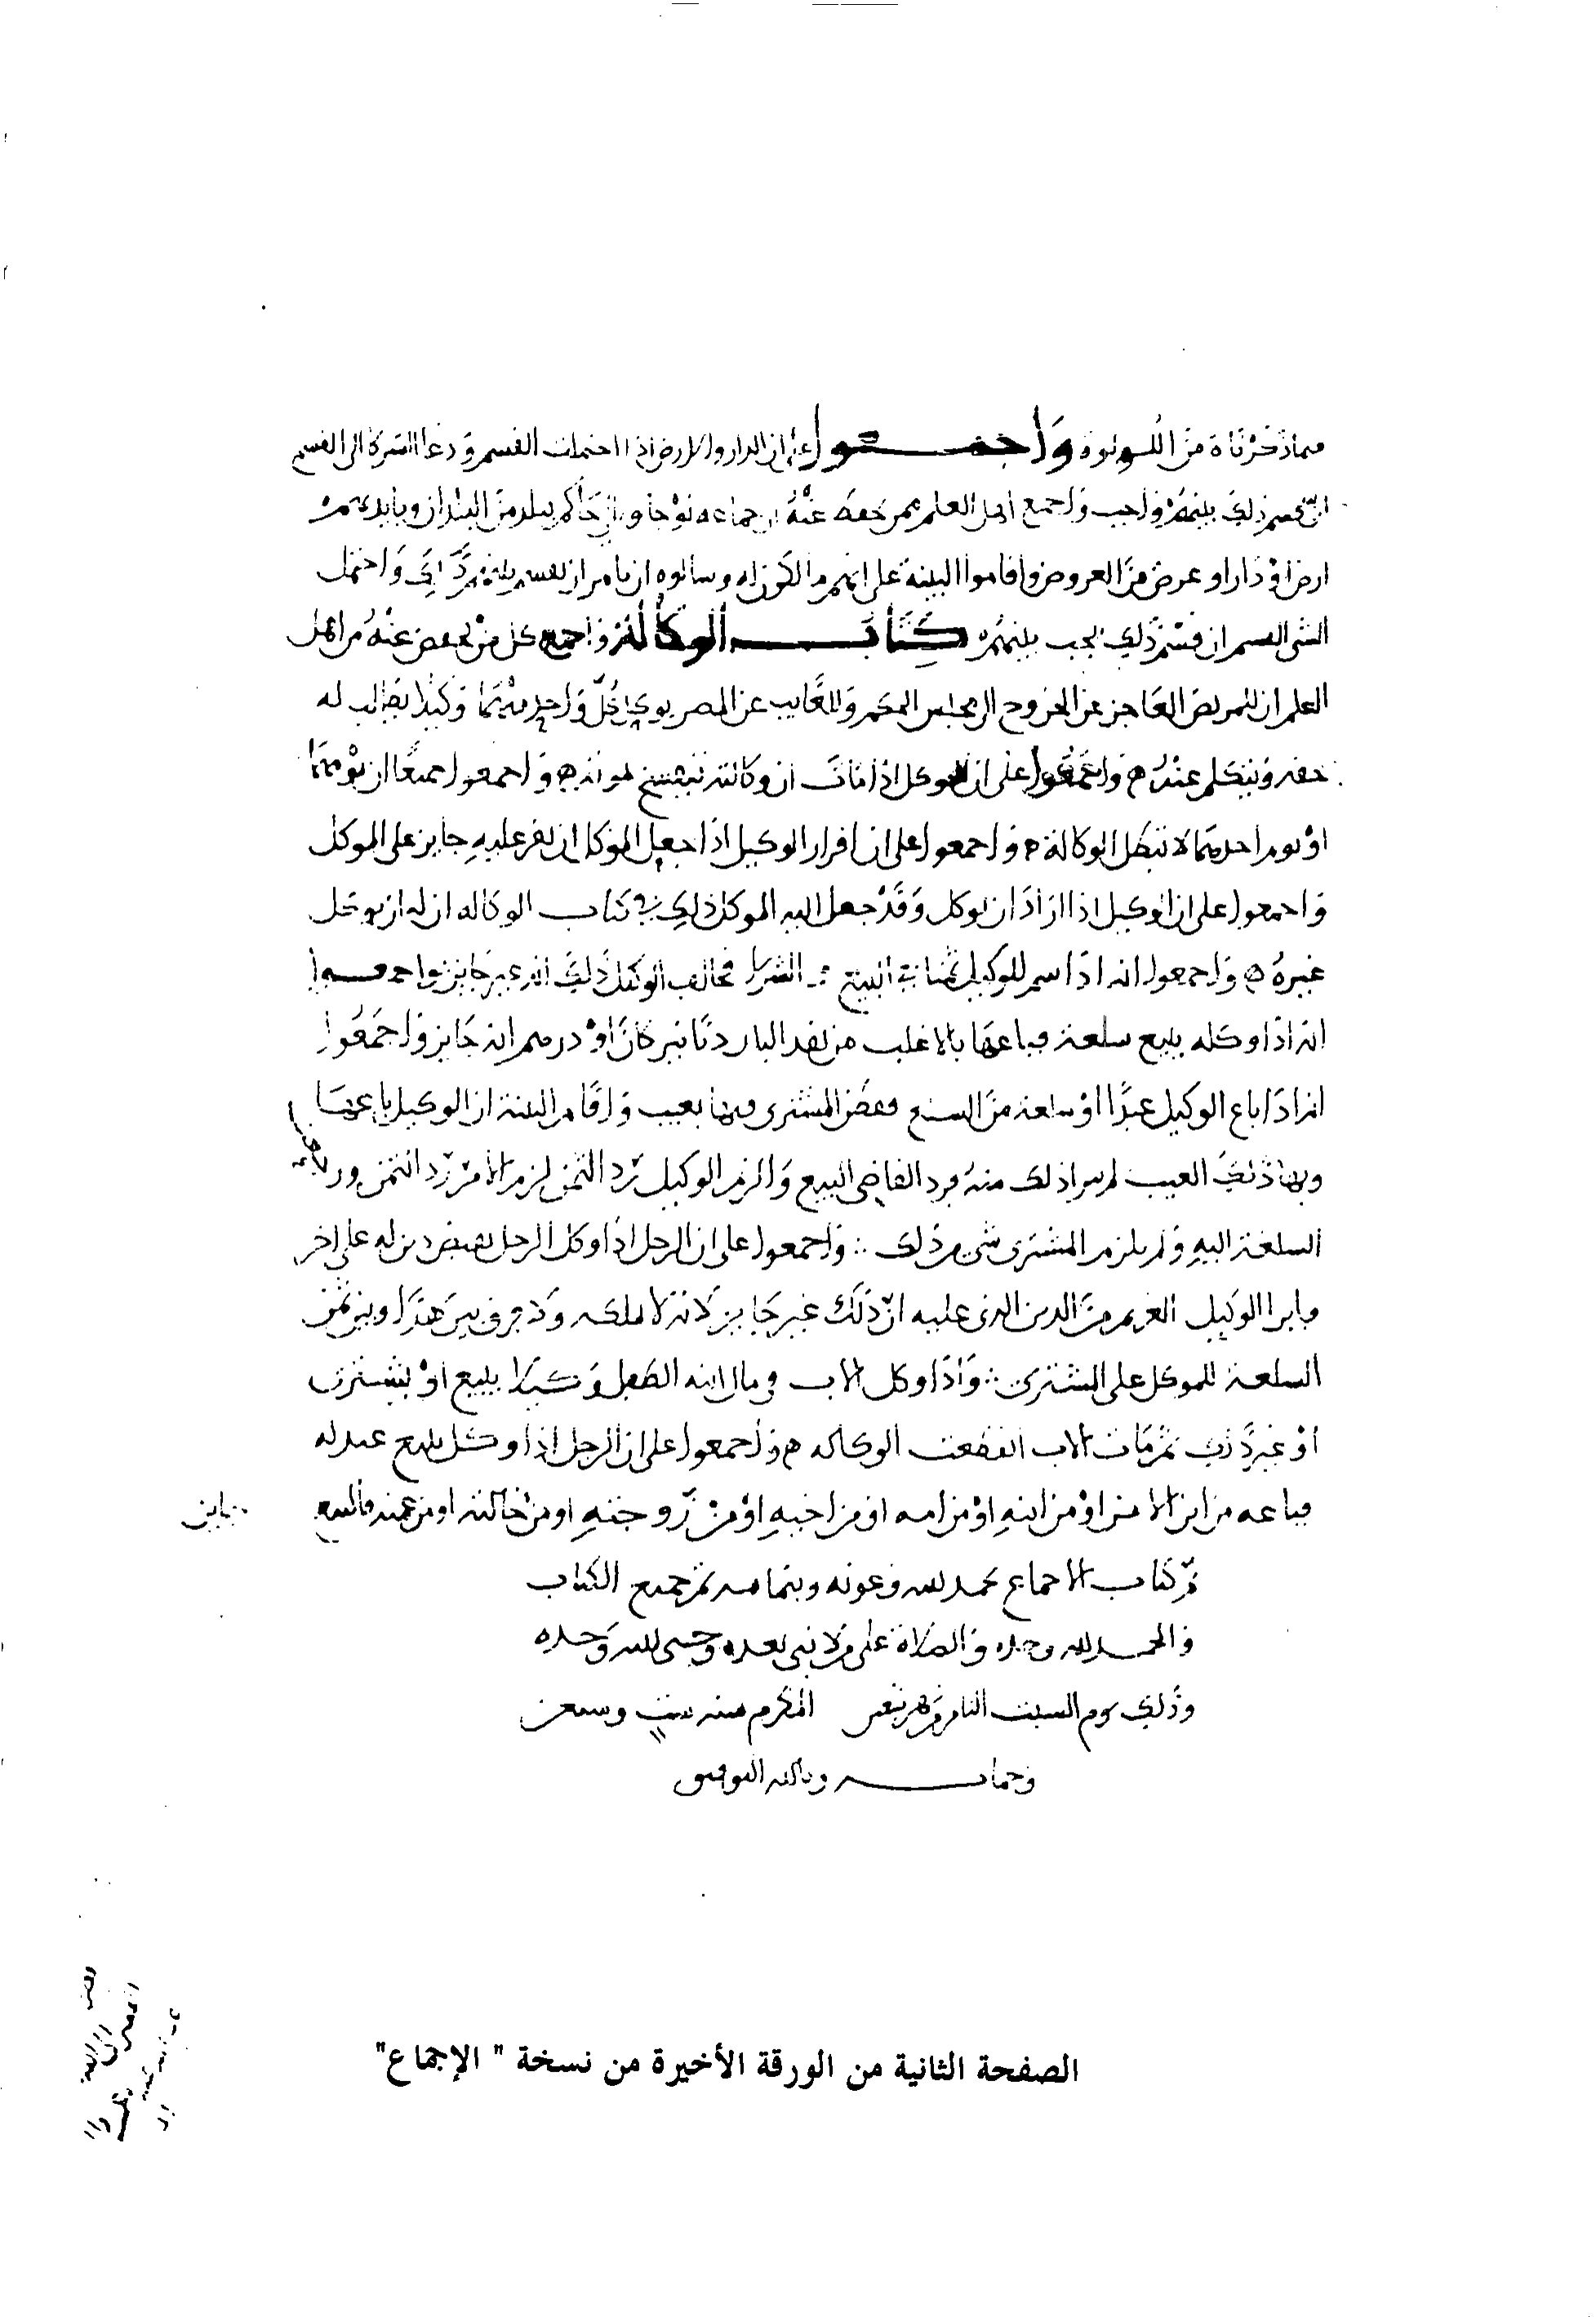 مما ذكرناه من اللولوه واجمعوا على ان الدار والارض اذا احتملت القسم ودعا الشركا الى القسم
ان قسم ذلك بينهم واجب واجمع اهل العلم ممن نحفظ عنه ان جماعه لو جاوا الى حاكم ببلد من البلدان وبايديهم
ارض او دار او عرض من العروض واقاموا البينة على انهم مالكون له وسالوه ان يامر ان يقسم بينهم ذلك واحتمل
الشي القسم ان قسم ذلك يجب بينهم كتاب الوكالة واجمع كل من نحفظ عنه من اهل
العلم ان للمريض العاجز عن الخروج الى مجلس الحكم وللغايب عن المصر يوكل كل واحد منهما وكيلا يطالب له
حقه ويتكلم عنه واجمعوا على ان الموكل اذا مات ان وكالته تنفسخ بموته واجمعوا جميعا ان يومهما
او يوم احدهما لا تبطل الوكالة واجمعوا على ان اقرار الوكيل اذا جعل الموكل ان يقر عليه جايز على الموكل
واجمعوا على ان الوكيل اذا اراد ان يوكل وقد جعل اليه الموكل ذلك في كتاب الوكاله ان له ان يوكل
غيره واجمعوا انه اذا سمى للوكيل ثمنا في البيع الشرا فخالف الوكيل ذلك انه غير جايز واجمعوا
انه اذا وكله ببيع سلعة فباعها بالاغلب من نقد البلد دنانير كان او دراهم انه جايز واجمعوا
انه اذا باع الوكيل عبدا او سلعة من السلع فطعن المشتري فيها بعيب واقام البينة ان الوكيل باعها
وبها ذلك العيب لم يبرا ذلك منه فرد القاضي البيع والزم الوكيل رد الثمن لزم الامر رد الثمن ورد
السلعة اليه ولم يلزم المشتري شي من ذلك واجمعوا على ان الرجل اذا وكل الرجل بقبض دين له على اخر
فابرا الوكيل الغريم من الدين الذي عليه ان ذلك غير جايز لانه لا يملكه ولا فرق بين هذا وبين ثمن
السلعة للموكل على المشتري واذا وكل الاب في مال ابنه الطفل وكيلا ببيع او بشترى
او غير ذلك ثم مات الاب انقطعت الوكاله واجمعوا على ان الرجل اذا وكل ببيع عبد له
فباعه من ابن الامر او من ابيه او من امه او من اخيه او من زوجته او من خالته او من عمته فالبيع جايز
تم كتاب الاجماع بحمد الله وعونه وبتمامه تم جميع الكتاب
والحمد لله وحده والصلاة على من لا نبي بعده وحسبي الله وحده
وذلك يوم السبت الثامن من شهر المكرم سنه ست وسبعين
وبالله التوفيق
الصفحة الثانية من الورقة الأخيرة من نسخة " الإجماع"